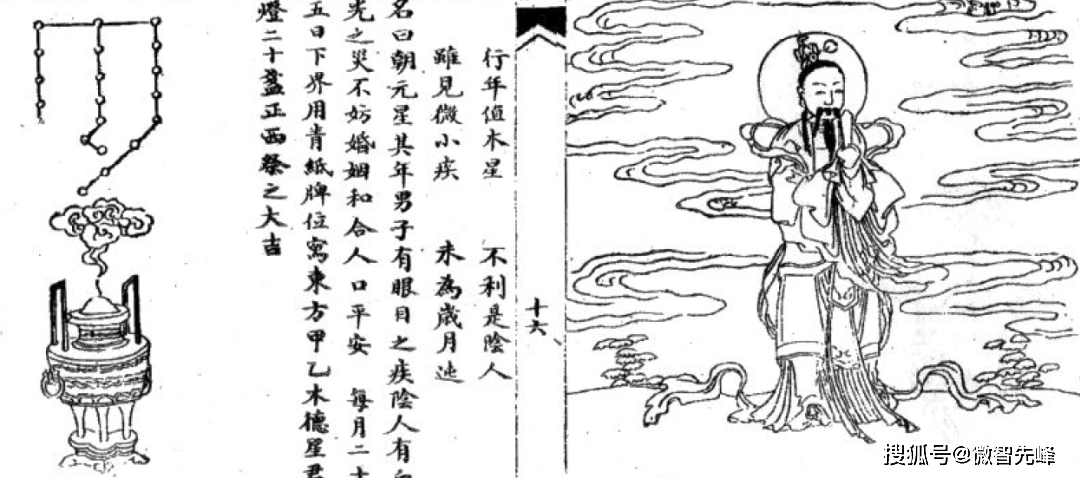 十六
行年值木星 不利是陰人
雖見微小疾 未為歲月迍
名曰朝元星其年男子有眼目之疾陰人有
光之災不妨婚姻和合人口平安 每月二十
五日下界用青紙牌位寫東方甲乙木德星君
燈二十盞正西祭之大吉
搜狐号@微智先峰